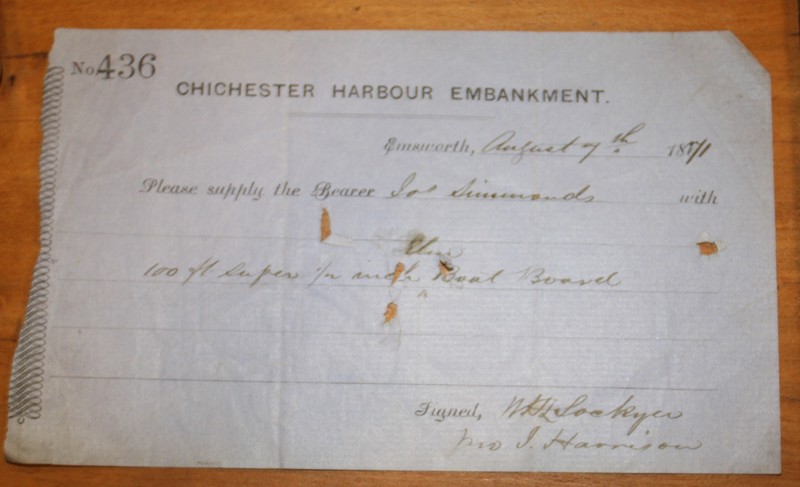 No 436
CHICHESTER HARBOUR EMBANKMENT.
Emsworth, August 7th 1871
Please supply the Bearer Jos Simmonds with
Elm
100 ft super 1/2 inch Boat Board
Signed, Lockyer
J. Harrison